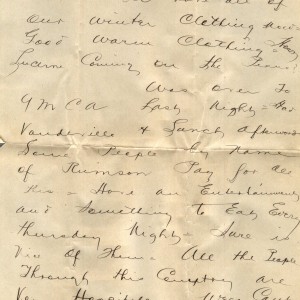 all of
Our Winter Clothing now
Good Warm Clothing
Lucerne Coming on the Train
Was over to
Y M C A Last Night
Vaudeville & Lunch afterwards
Some People by Name
of Rumson Pay for all
this - Have an Entertainment
and Something to Eat Every
Thursday Night - Sure is
Nice of Them - All the People
Through this Country are
Very